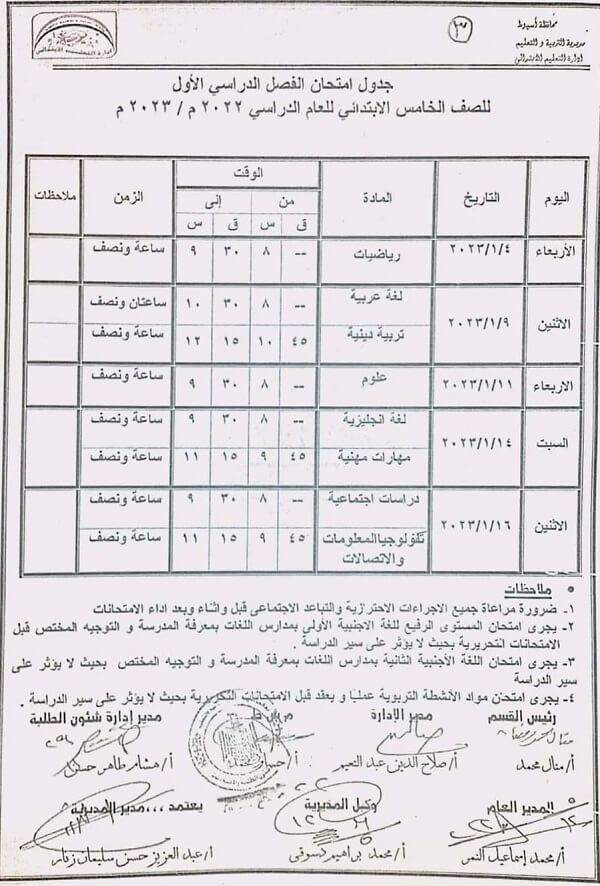 محافظة أسيوط
مديرية التربية و التعليم
إدارة التعليم الابتدائي
جدول امتحان الفصل الدراسي الأول
للصف الخامس الابتدائي للعام الدراسي ٢٠٢٢ م / ٢٠٢٣ م
اليوم التاريخ المادة الوقت الزمن ملاحظات
من إلى
ق س ق س
الأربعاء ٢٠٢٣/١/٤ رياضيات -- ٨ ٣٠ ٩ ساعة ونصف
الاثنين ٢٠٢٣/١/٩ لغة عربية -- ٨ ٣٠ ١٠ ساعتان ونصف
تربية دينية ٤٥ ١٠ ١٥ ١٢ ساعة ونصف
الاربعاء ٢٠٢٣/١/١١ علوم -- ٨ ٣٠ ٩ ساعة ونصف
السبت ٢٠٢٣/١/١٤ لغة انجليزية -- ٨ ٣٠ ٩ ساعة ونصف
مهارات مهنية ٤٥ ٩ ١٥ ١١ ساعة ونصف
الاثنين ٢٠٢٣/١/١٦ دراسات اجتماعية -- ٨ ٣٠ ٩ ساعة ونصف
تكنولوجيا المعلومات ٤٥ ٩ ١٥ ١١ ساعة ونصف
والاتصالات
• ملاحظات
١- ضرورة مراعاة جميع الاجراءات الاحترازية والتباعد الاجتماعى قبل واثناء وبعد اداء الامتحانات
٢- يجرى امتحان المستوى الرفيع للغة الاجنبية الأولى بمدارس اللغات بمعرفة المدرسة و التوجيه المختص قبل
الامتحانات التحريرية بحيث لا يؤثر على سير الدراسة .
٣- يجرى امتحان اللغة الأجنبية الثانية بمدارس اللغات بمعرفة المدرسة و التوجيه المختص بحيث لا يؤثر على
سير الدراسة
٤- يجرى امتحان مواد الأنشطة التربوية عمليا و يعقد قبل الامتحانات التحريرية بحيث لا يؤثر على سير الدراسة .
رئيس القسم مدير الإدارة مدير إدارة شئون الطلبة
أ/ منال محمد أ/ صلاح الدين عبد النعيم أ/ هشام طاهر حسن
المدير العام وكيل المديرية يعتمد ،،، مدير المديرية
أ/ محمد إسماعيل النمر أ/ محمد إبراهيم دسوقى أ/ عبد العزيز حسن سليمان زنار